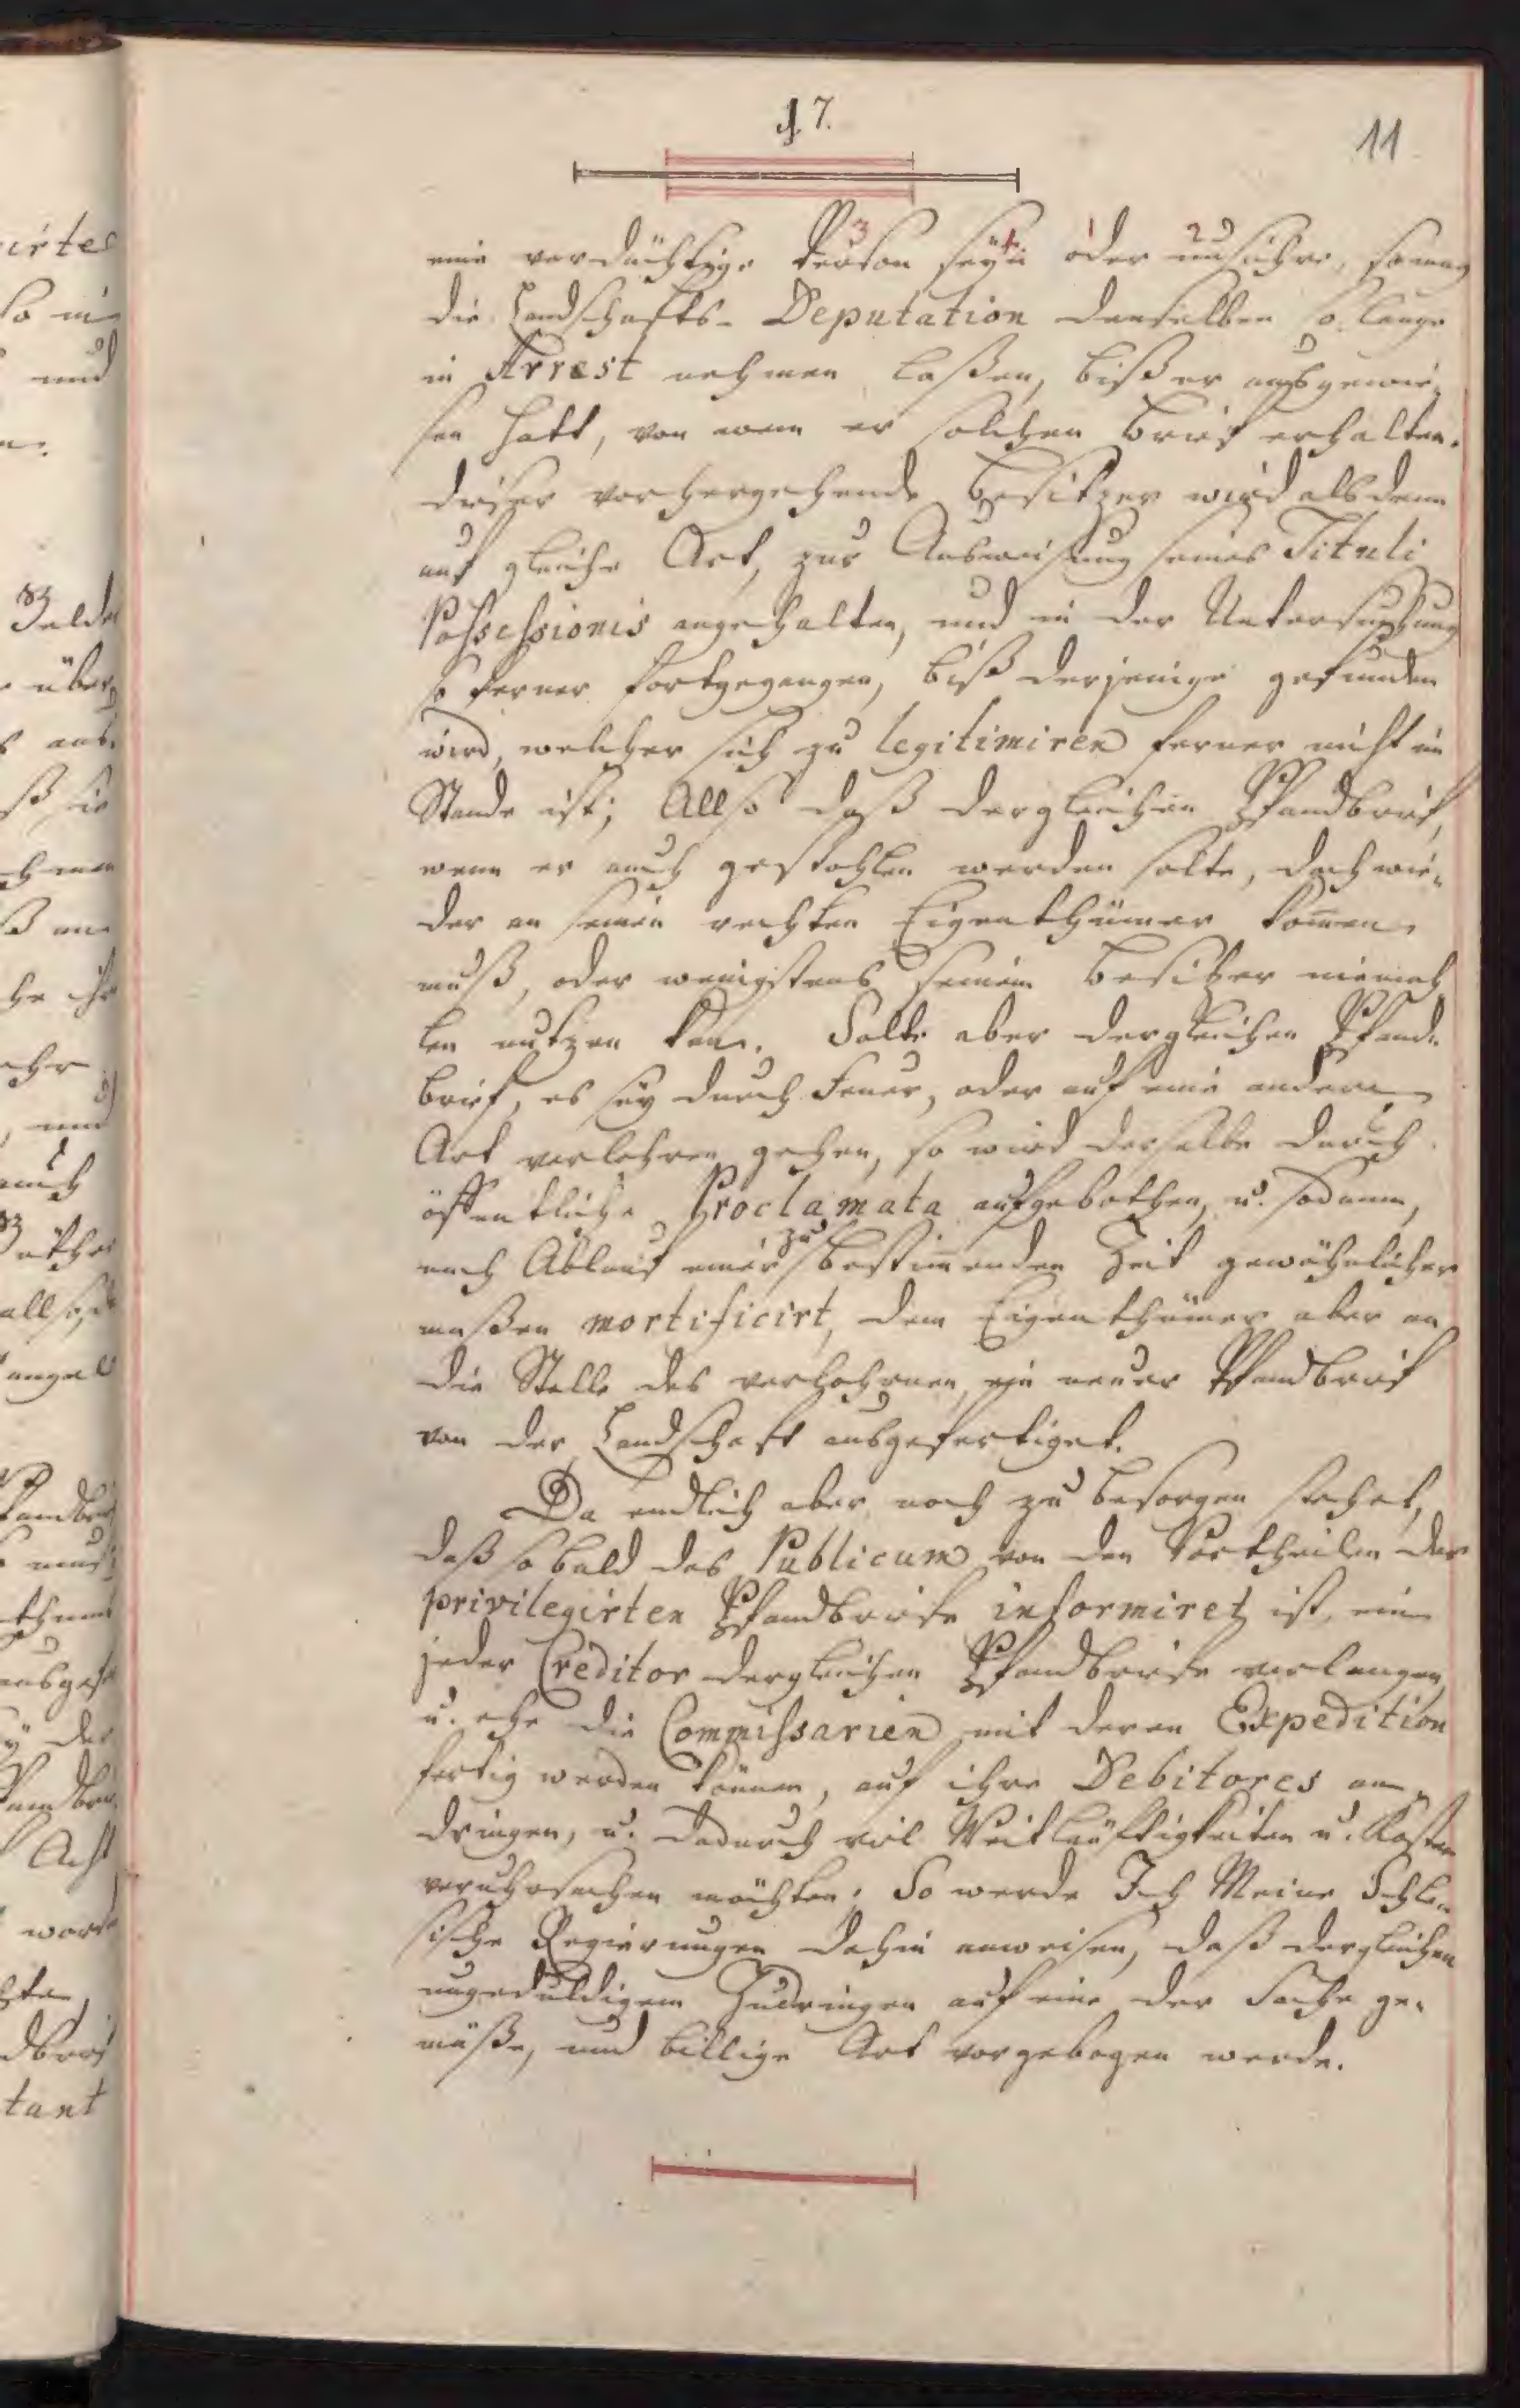 §. 7.
11
eine verdächtige Person seyn oder unsichre, so mag
die Landschafts-Deputation denselben so lange
in Arrest nehmen laßen, biß er ausgewie-
sen hatt, von wem er solchen Brief erhalten.
Dieser vorhergehende Besitzer wird alsdenn
auf gleiche Art, zur Ausweisung seines Tituli
Possessionis angehalten, und in der Untersuchung
so ferner fortgegangen, biß derjenige gefunden
wird, welcher sich zu legitimiren ferner nicht im
Stande ist; Allso daß dergleichen Pfandbrief,
wenn er auch gestohlen werden solte, doch wie-
der an seinen rechten Eigenthümer kommen
muß, oder wenigstens seinem Besitzer niemah-
len nutzen kan. Solte aber dergleichen Pfand-
brief, es sey durch Feuer, oder auf eine andere
Art verlohren gehen, so wird derselbe durch
öffentliche Proclamata aufgebothen, u. sodann,
nach Ablauf einer zu bestimmenden Zeit gewöhnlicher
maßen mortificirt, dem Eigenthümer aber an
die Stelle des verlohrnen, ein neuer Pfandbrief
von der Landschaft ausgefertiget.
Da endlich aber noch zu besorgen stehet,
daß so bald das Publicum von den Vortheilen der
privilegirten Pfandbriefe informiret ist, ein
jeder Creditor dergleichen Pfandbriefe verlangen
u. ehe die Commissarien mit deren Expedition
fertig werden können, auf ihre Debitores an-
dringen, u. dadurch viel Weitläuftigkeiten u. Kosten
veruhrsachen möchten; So werde Ich Meine Schle-
sische Regierungen dahin anweisen, daß dergleichen
ungeduldigem Zudringen auf eine der Sache ge-
mäße, und billige Art vorgebogen werde.